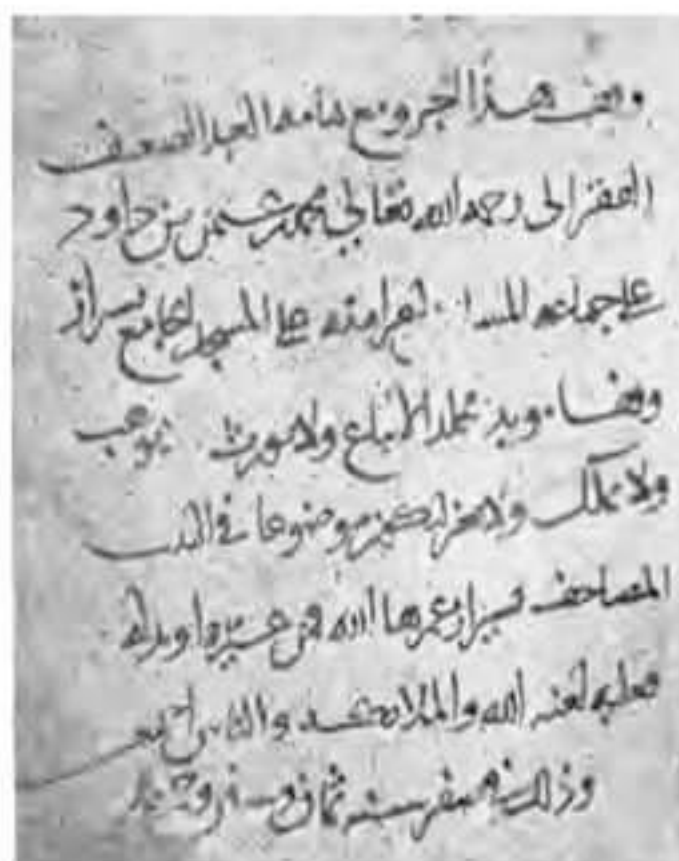 وقف هذا الجزو مع تمامه العبد الضعيف
الفقير الى رحمه الله تعالى محمد بن داود
على جماعه المسلمين على المسجد الجامع بشيراز
وقفا موبدا مخلدا لا يباع ولا يورث ولا يوهب
ولا يملك ولا موضوعا في البيت
المصاحف بشيراز عمرها الله فمن غيره او بدله
فعليه لعنه الله والملائكه والناس اجمعين
وذلك في صفر سنه ثمان و